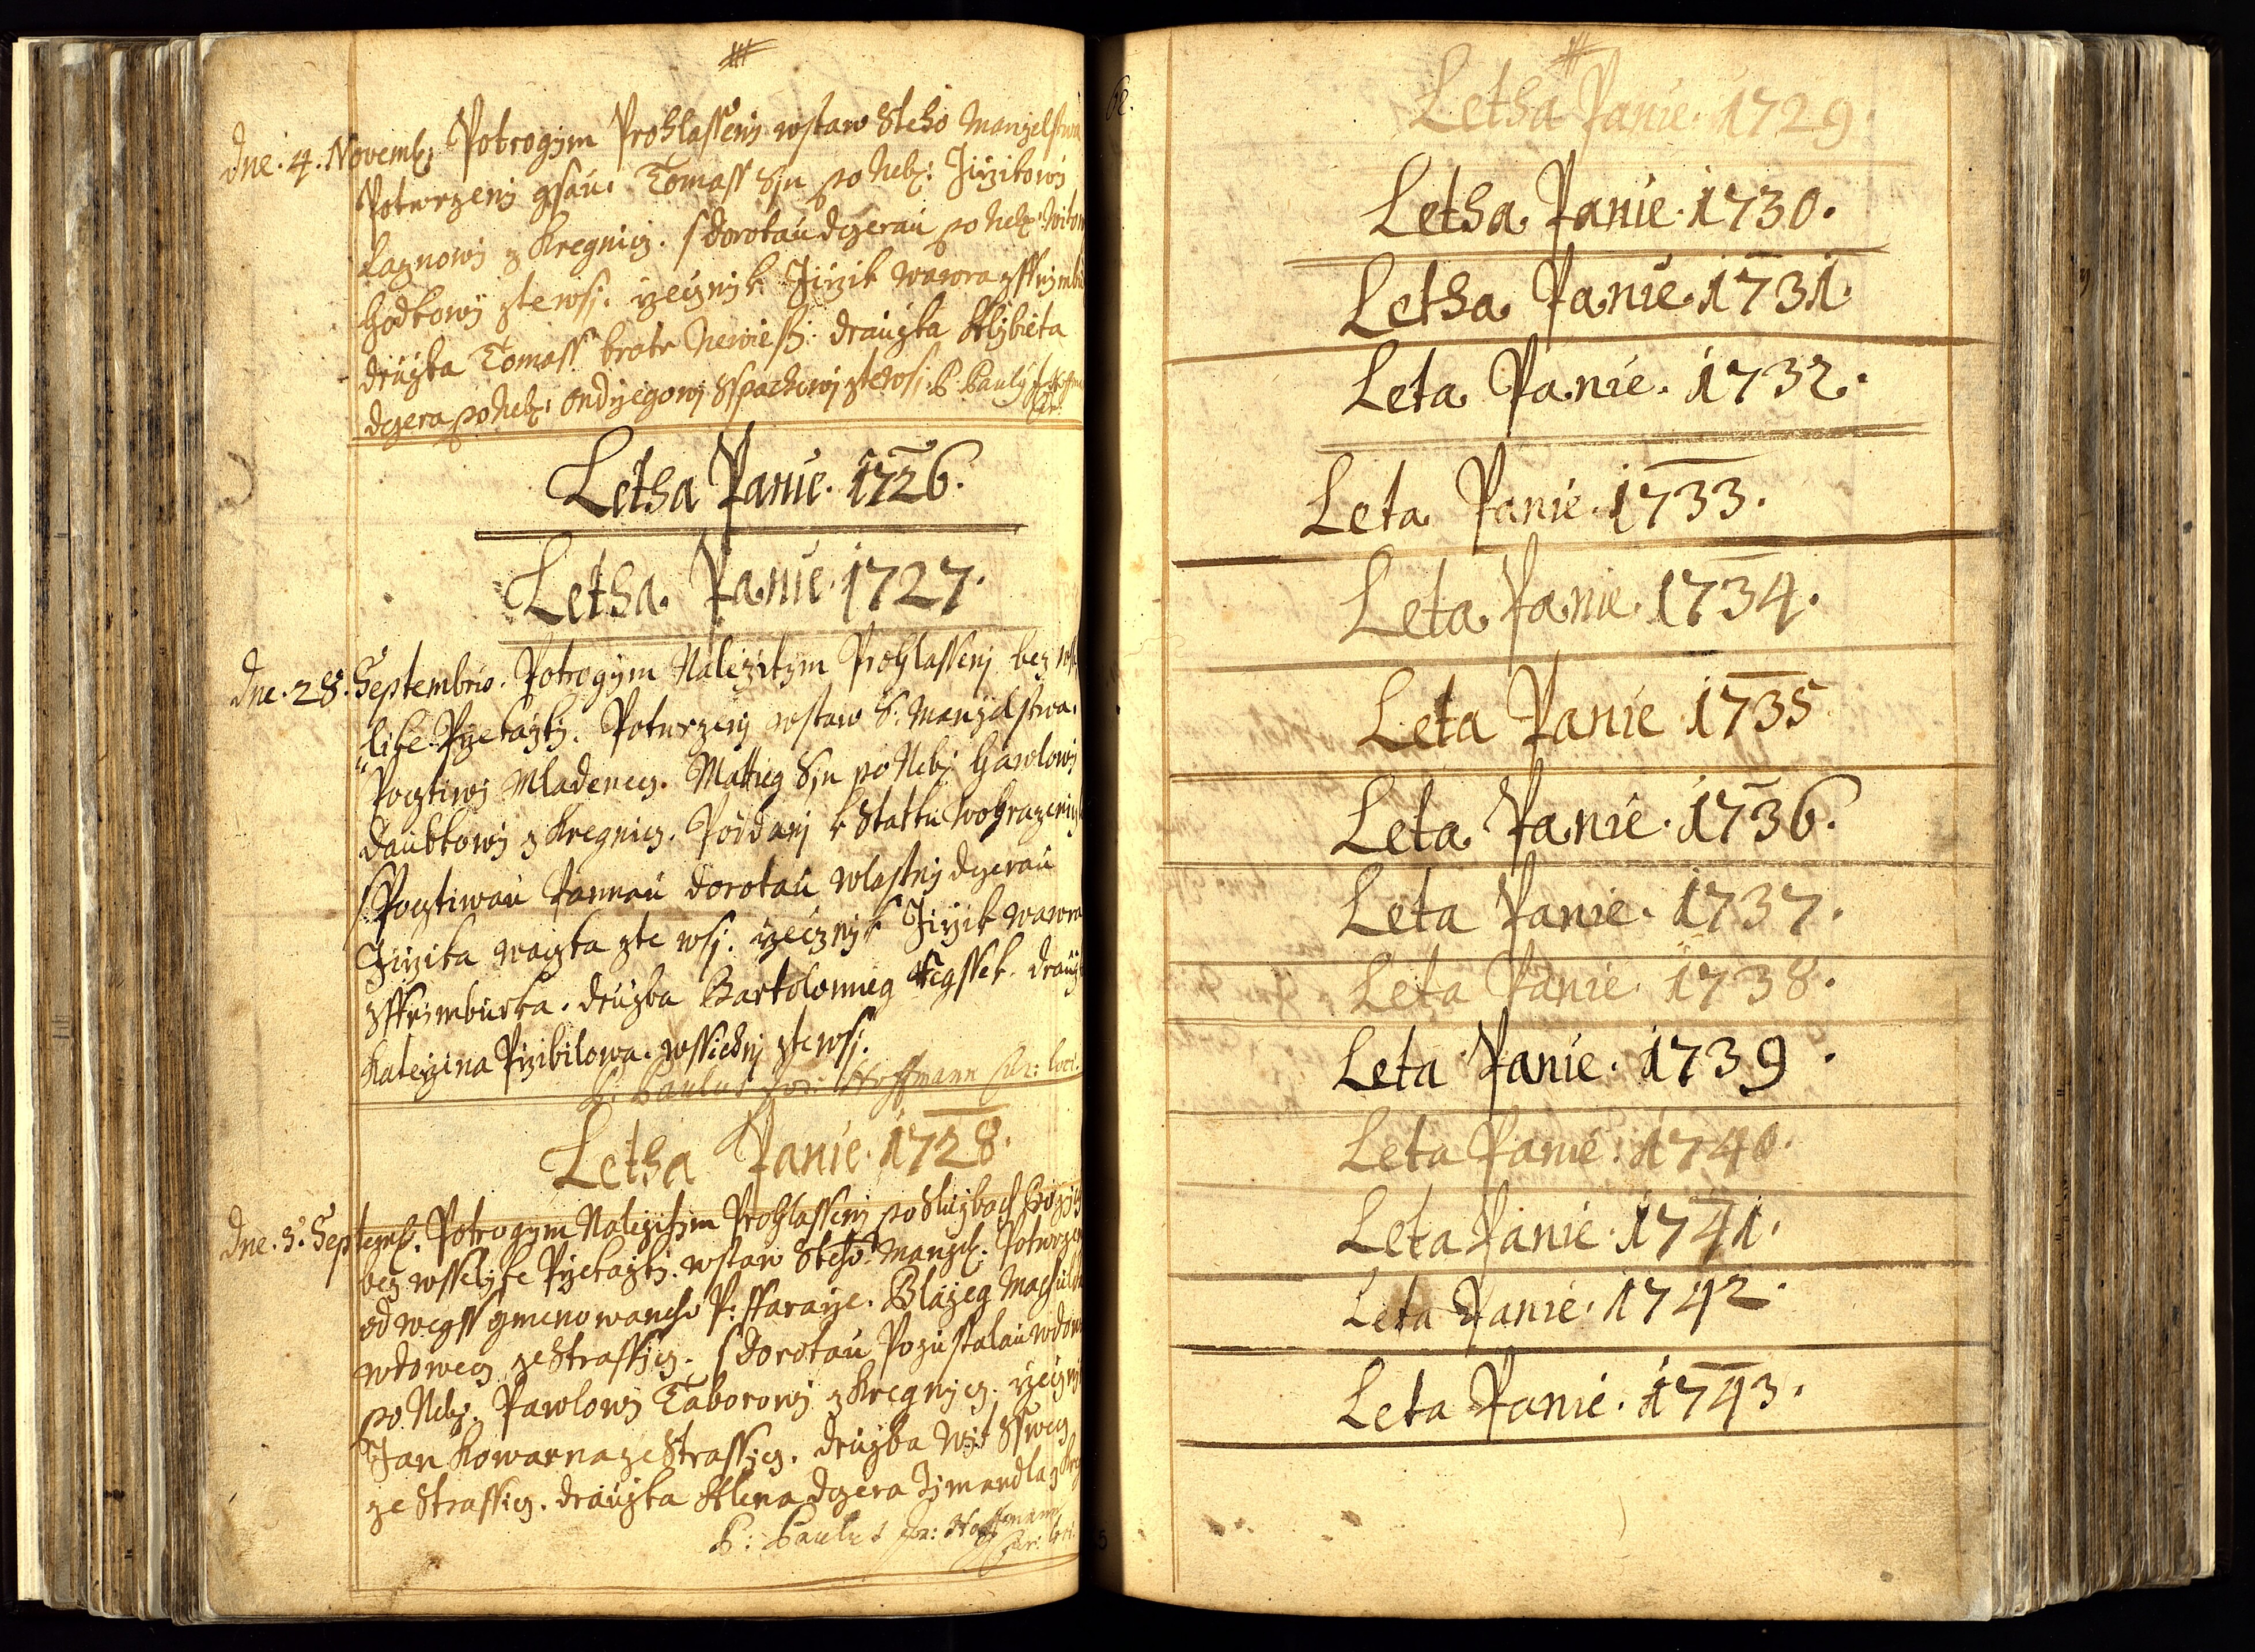 Dne. 4. Novemb: Potrogym Prohlasseny wstaw Steho Manzelstwa
Potwrzeny gsau. Tomass Syn po Neb: Jirzikowi
Laznowy z Kregnicz. s Dorotau dczerau po Neb:
Hodkowy zte wsy. rzecznyk Jirzik Wawra z
druzba Tomass bratr Newiesty. drauzka Alzbieta
dczera po Neb: Ondrzegowy Sspackowi zte wsy. P. Pauly
Letha Panie. 1726.
Letha Panie. 1727.
Dne. 28. Septembris. Potrogym Nalezitym Prohlasseny bez wsse
like Przekazky. Potwrzeny wstaw S. Manzelstwa.
Pocztiwy Mladenecz. Mattieg Syn po Neb: Hawlowy
Daubkowy z Kregnicz. Poddany k Statku
s Pocztiwau Pannau Dorotau wlastny dczerau
Jirzika zte wsy. rzecznyk Jirzik Wawra
z Sskrimburka. druzba Bartolomieg drauzka
Katerzina Przibilowa. wssickni zte wsy.
P: Paulus Hoffmann loci.
Letha Panie. 1728.
Dne. 5. Septemb. Potrogym Nalezitym Prohlasseny po Sluzbach Bozych
bez wsselyke Przekazky. wstaw Steho Manzel: Potwrzen
od wegss gmenowaneho P: ffararze. Blazeg
wdowecz ze Strassicz. s Dorotau Pozustalau wdowau
po Neb: Pawlowy Taborowy z Kregnicz. rzecznyk
Jan Kowarna ze Strassicz. druzba Wit
ze Strassicz. drauzka Alena dczera Zimandla z
P: Paulus Hoffmann loci.
Letha Panie. 1729.
Letha Panie. 1730.
Letha Panie. 1731.
Leta Panie. 1732.
Leta Panie. 1733.
Leta Panie. 1734.
Leta Panie 1735
Leta Panie. 1736.
Leta Panie. 1737.
Leta Panie 1738.
Leta Panie. 1739.
Leta Panie. 1740.
Leta Panie. 1741.
Leta Panie. 1742.
Leta Panie. 1743.